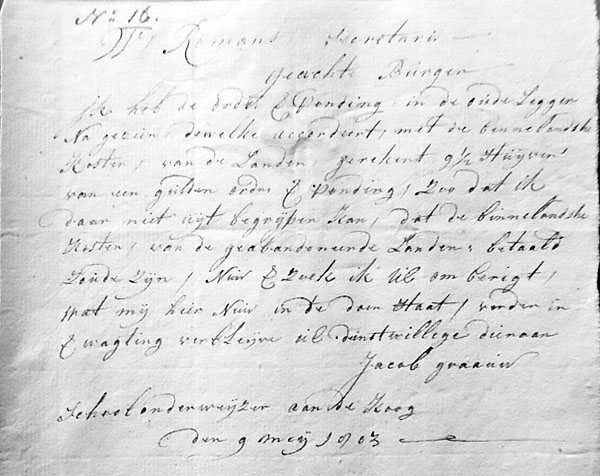 No 16.
Romans Secretaris
geachte Burger
ik heb de ordre E Ponding, in de oude Legger
Na gezien, dewelke accordeert, met de binnelandse
Kosten, van de Landen, gerekent 9½ Stuÿver
van een gulden ordre E Ponding, Zoo dat ik
daar niet uÿt begrÿpen Kan, dat de binnelandse
Kosten, van de geabandoneerde Landen, betaald
Zoude Zÿn, Nuw E Zoek ik Ul om berigt,
wat mÿ hier Nuw in te doen Staat, vorder in
E wagting verblÿve ul dienstwillege dienaar
Jacob graauw
School onderwÿzer aan de Koog
den 9 meÿ 1803